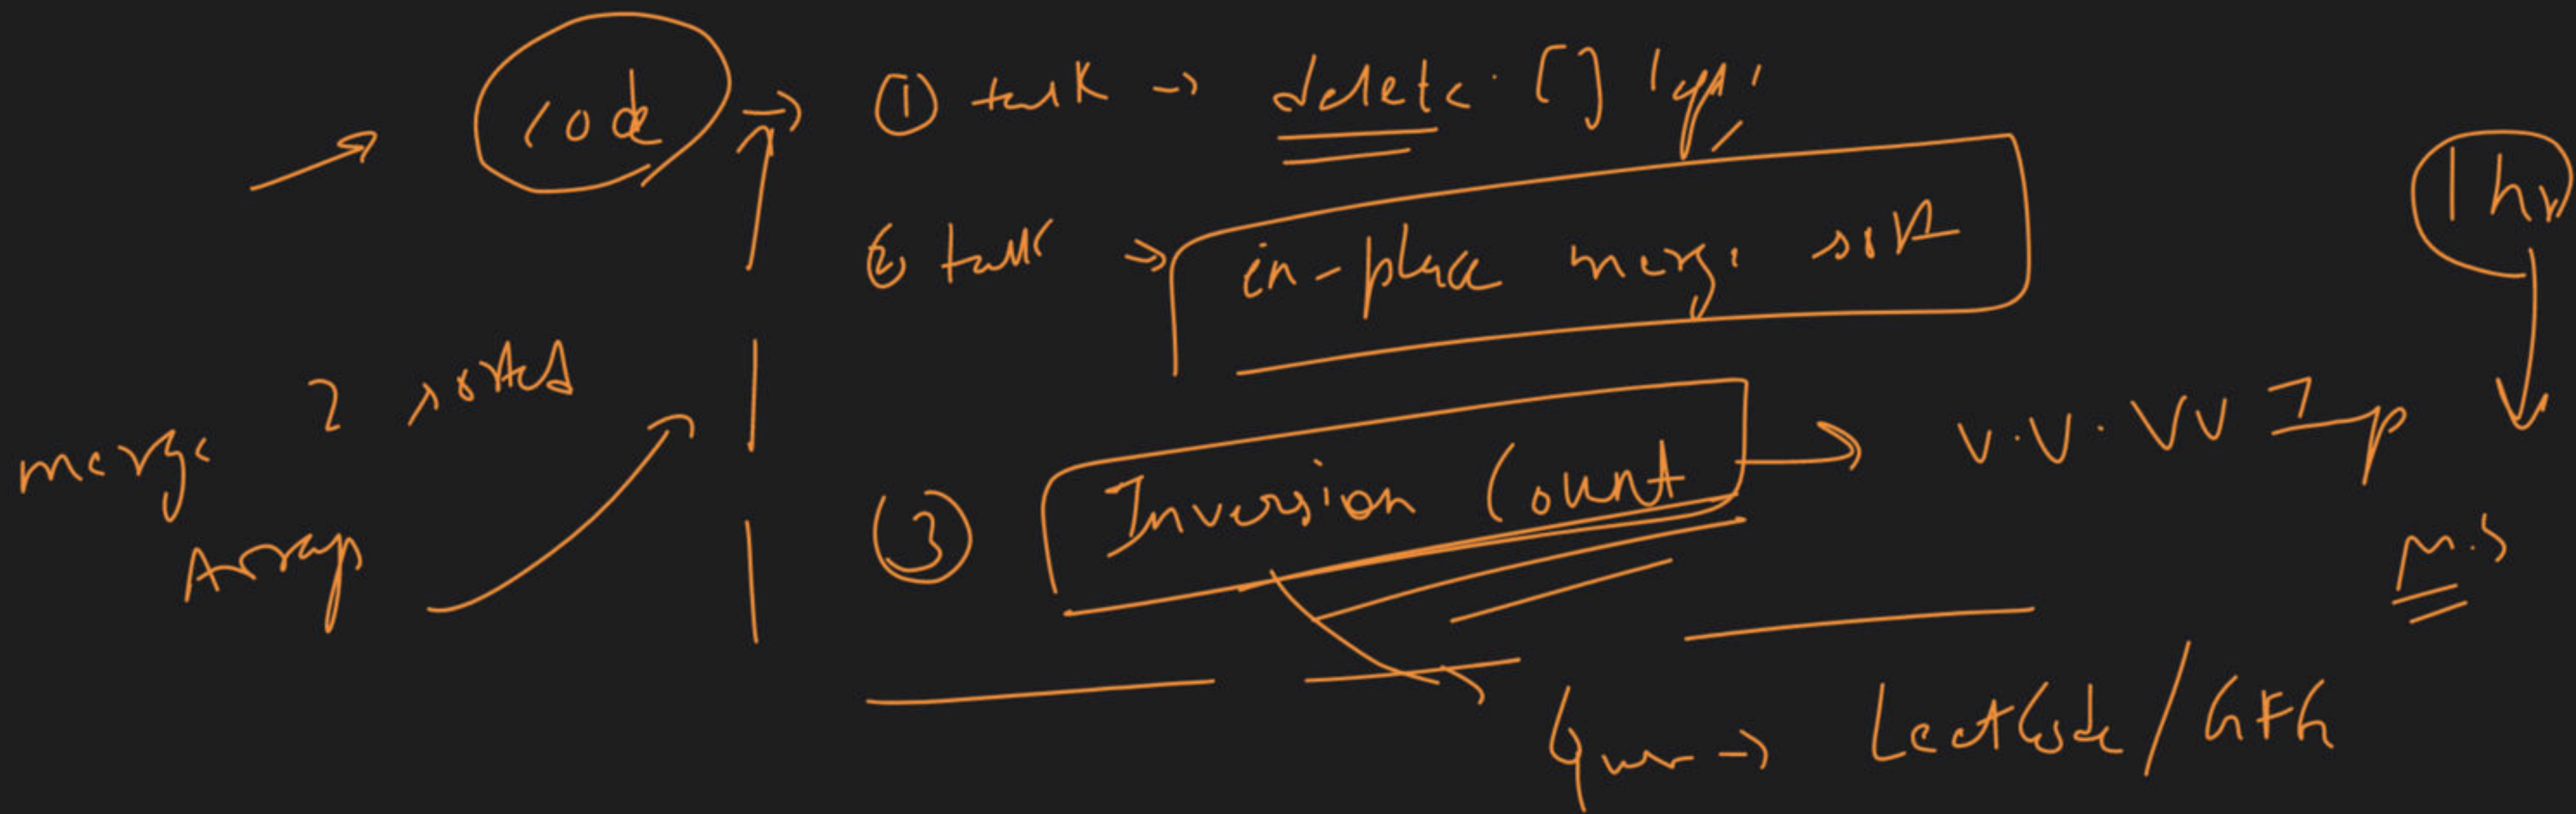 code → ① task → delete [] 
② task → in-place merge sort
1 hr
merge 2 sorted
Arrays
③ Inversion Count → v.v.vv Imp
M.S
Ques → LeetCode / GFG